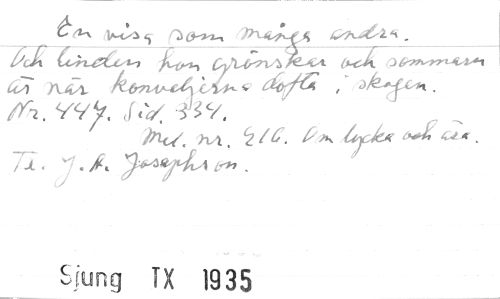 En visa som många andra.
Och linden hon grönskar och sommaren
är när konvaljerna dofta i skogen.
Nr. 447. Sid. 334.
Mel. nr. 216. Om lycka och ära.
Te. J. A. Josephson.
Sjung TX 1935